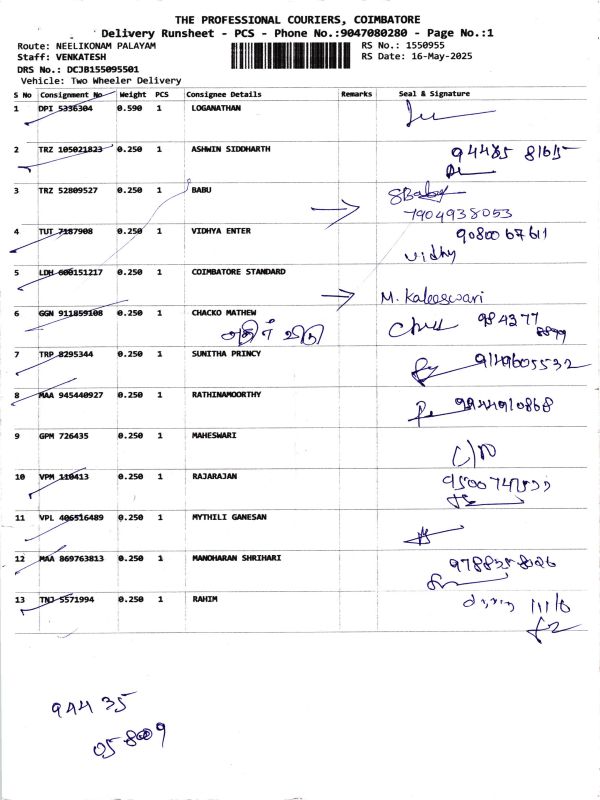 THE PROFESSIONAL COURIERS, COIMBATORE
Delivery Runsheet - PCS - Phone No.:9047080280 - Page No.:1
Route: NEELIKONAM PALAYAM RS No.: 1550955
Staff: VENKATESH RS Date: 16-May-2025
DRS No.: DCJB155095501
Vehicle: Two Wheeler Delivery
S No Consignment No Weight PCS Consignee Details Remarks Seal & Signature
1 DPI 5336304 0.590 1 LOGANATHAN
2 TRZ 105021823 0.250 1 ASHWIN SIDDHARTH 94485 81615
3 TRZ 52809527 0.250 1 BABU SBaby
7904938053
4 TUT 7187908 0.250 1 VIDHYA ENTER 9080067611
vidhy
5 LDH 600151217 0.250 1 COIMBATORE STANDARD
M. Kaleeswari
6 GGN 911859108 0.250 1 CHACKO MATHEW 984377
8899
எதிர் வீடு
7 TRP 8295344 0.250 1 SUNITHA PRINCY 9149605532
8 MAA 945440927 0.250 1 RATHINAMOORTHY 9944910868
9 GPM 726435 0.250 1 MAHESWARI
C/N
10 VPM 110413 0.250 1 RAJARAJAN
11 VPL 406516489 0.250 1 MYTHILI GANESAN
12 MAA 869763813 0.250 1 MANOHARAN SHRIHARI
13 TNJ 5571994 0.250 1 RAHIM
944 35
05 8009